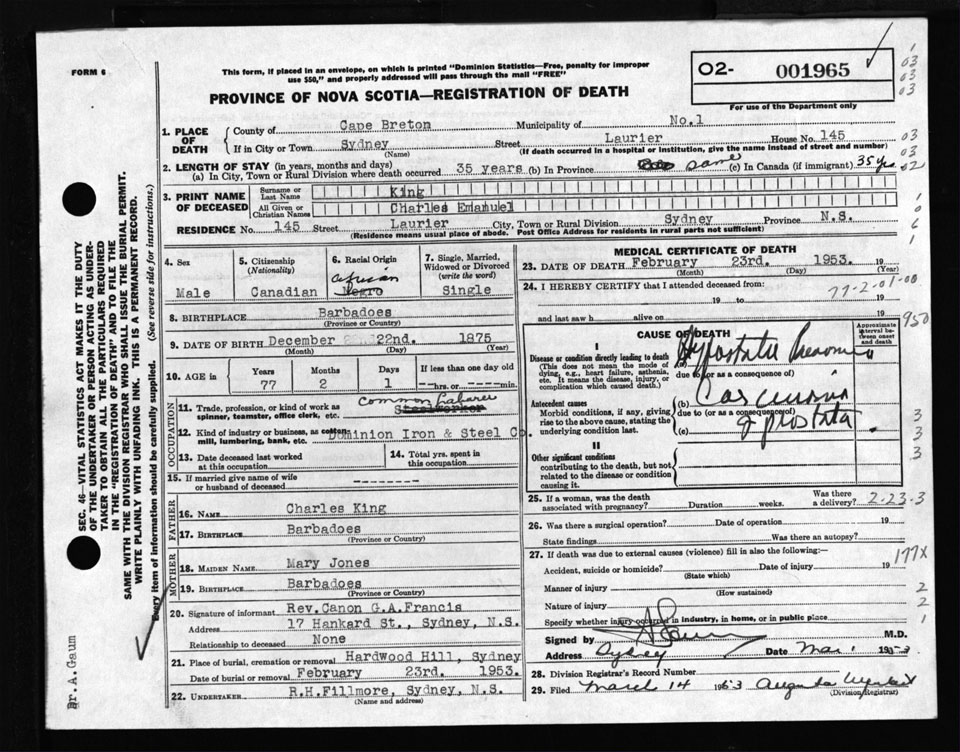 FORM 6
This form, if placed in an envelope, on which is printed "Dominion Statistics—Free, penalty for improper
use $50," and properly addressed will pass through the mail "FREE"
PROVINCE OF NOVA SCOTIA—REGISTRATION OF DEATH
02- 001965
For use of the Department only
1. PLACE OF DEATH { County of Cape Breton Municipality of No.1
If in City or Town Sydney Street Laurier House No. 145
(Name) (If death occurred in a hospital or institution, give the name instead of street and number)
2. LENGTH OF STAY (in years, months and days)
(a) In City, Town or Rural Division where death occurred 35 years (b) In Province same (c) In Canada (if immigrant) 35 yrs
3. PRINT NAME OF DECEASED { Surname or Last Name King
All Given or Christian Names Charles Emanuel
RESIDENCE No. 145 Street Laurier City, Town or Rural Division Sydney Province N.S.
(Residence means usual place of abode. Post Office Address for residents in rural parts not sufficient)
4. Sex
Male
5. Citizenship (Nationality)
Canadian
6. Racial Origin
African
Negro
7. Single, Married, Widowed or Divorced (write the word)
Single
8. BIRTHPLACE Barbadoes
(Province or Country)
9. DATE OF BIRTH December 22nd. 1875
(Month) (Day) (Year)
10. AGE in Years Months Days If less than one day old
77 2 1 --hrs. or ---min.
OCCUPATION
11. Trade, profession, or kind of work as spinner, teamster, office clerk, etc. Common Laborer
Steelworker
12. Kind of industry or business, as cotton mill, lumbering, bank, etc. Dominion Iron & Steel Co.
13. Date deceased last worked at this occupation
14. Total yrs. spent in this occupation
15. If married give name of wife or husband of deceased ---------
FATHER
16. NAME Charles King
17. BIRTHPLACE Barbadoes
(Province or Country)
MOTHER
18. MAIDEN NAME Mary Jones
19. BIRTHPLACE Barbadoes
(Province or Country)
20. Signature of informant Rev.Canon G.A.Francis
Address 17 Hankard St., Sydney, N.S.
Relationship to deceased None
21. Place of burial, cremation or removal Hardwood Hill, Sydney
Date of burial or removal February 23rd. 1953.
22. UNDERTAKER R.H.Fillmore, Sydney, N.S.
(Name and address)
MEDICAL CERTIFICATE OF DEATH
23. DATE OF DEATH February 23rd. 1953. 19
(Month) (Day) (Year)
24. I HEREBY CERTIFY that I attended deceased from:
77-2-01-00
19 to 19
and last saw h alive on 19
950
CAUSE OF DEATH
Approximate interval between onset and death
I
Disease or condition directly leading to death
(This does not mean the mode of dying, e.g., heart failure, asthenia, etc. It means the disease, injury, or complication which caused death.)
(a) Hypostatic Pneumonia
due to (or as a consequence of)
Antecedent causes
Morbid conditions, if any, giving rise to the above cause, stating the underlying condition last.
(b) Carcinoma
due to (or as a consequence of)
(c) of prostata
II
Other significant conditions
contributing to the death, but not related to the disease or condition causing it
25. If a woman, was the death associated with pregnancy? Duration weeks. Was there a delivery? 2-23-3
26. Was there a surgical operation? Date of operation 19
State findings Was there an autopsy?
27. If death was due to external causes (violence) fill in also the following:—
Accident, suicide or homicide? Date of injury 19
(State which)
177X
Manner of injury
(How sustained)
Nature of injury
Specify whether injury occurred in industry, in home, or in public place
Signed by M.D.
Address Sydney Date Mar. 1953
28. Division Registrar's Record Number
29. Filed March 14 1953
(Division Registrar)
SEC. 46—VITAL STATISTICS ACT MAKES IT THE DUTY
OF THE UNDERTAKER OR PERSON ACTING AS UNDER-
TAKER TO OBTAIN ALL THE PARTICULARS REQUIRED
IN THE "REGISTRATION OF DEATH" AND TO FILE THE
SAME WITH THE DIVISION REGISTRAR WHO SHALL ISSUE THE BURIAL PERMIT.
WRITE PLAINLY WITH UNFADING INK. THIS IS A PERMANENT RECORD.
Every item of information should be carefully supplied. (See reverse side for instructions.)
Dr.A.Gaum